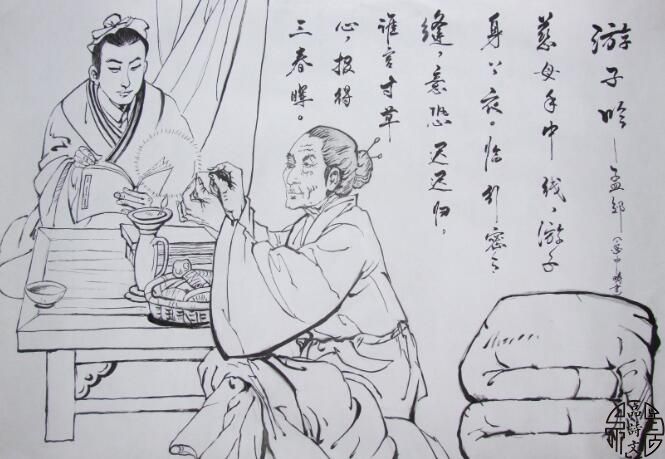 游子吟—孟郊
慈母手中线，游子
身上衣。临行密密
缝，意恐迟迟归，
谁言寸草
心，报得
三春晖。
品詩文